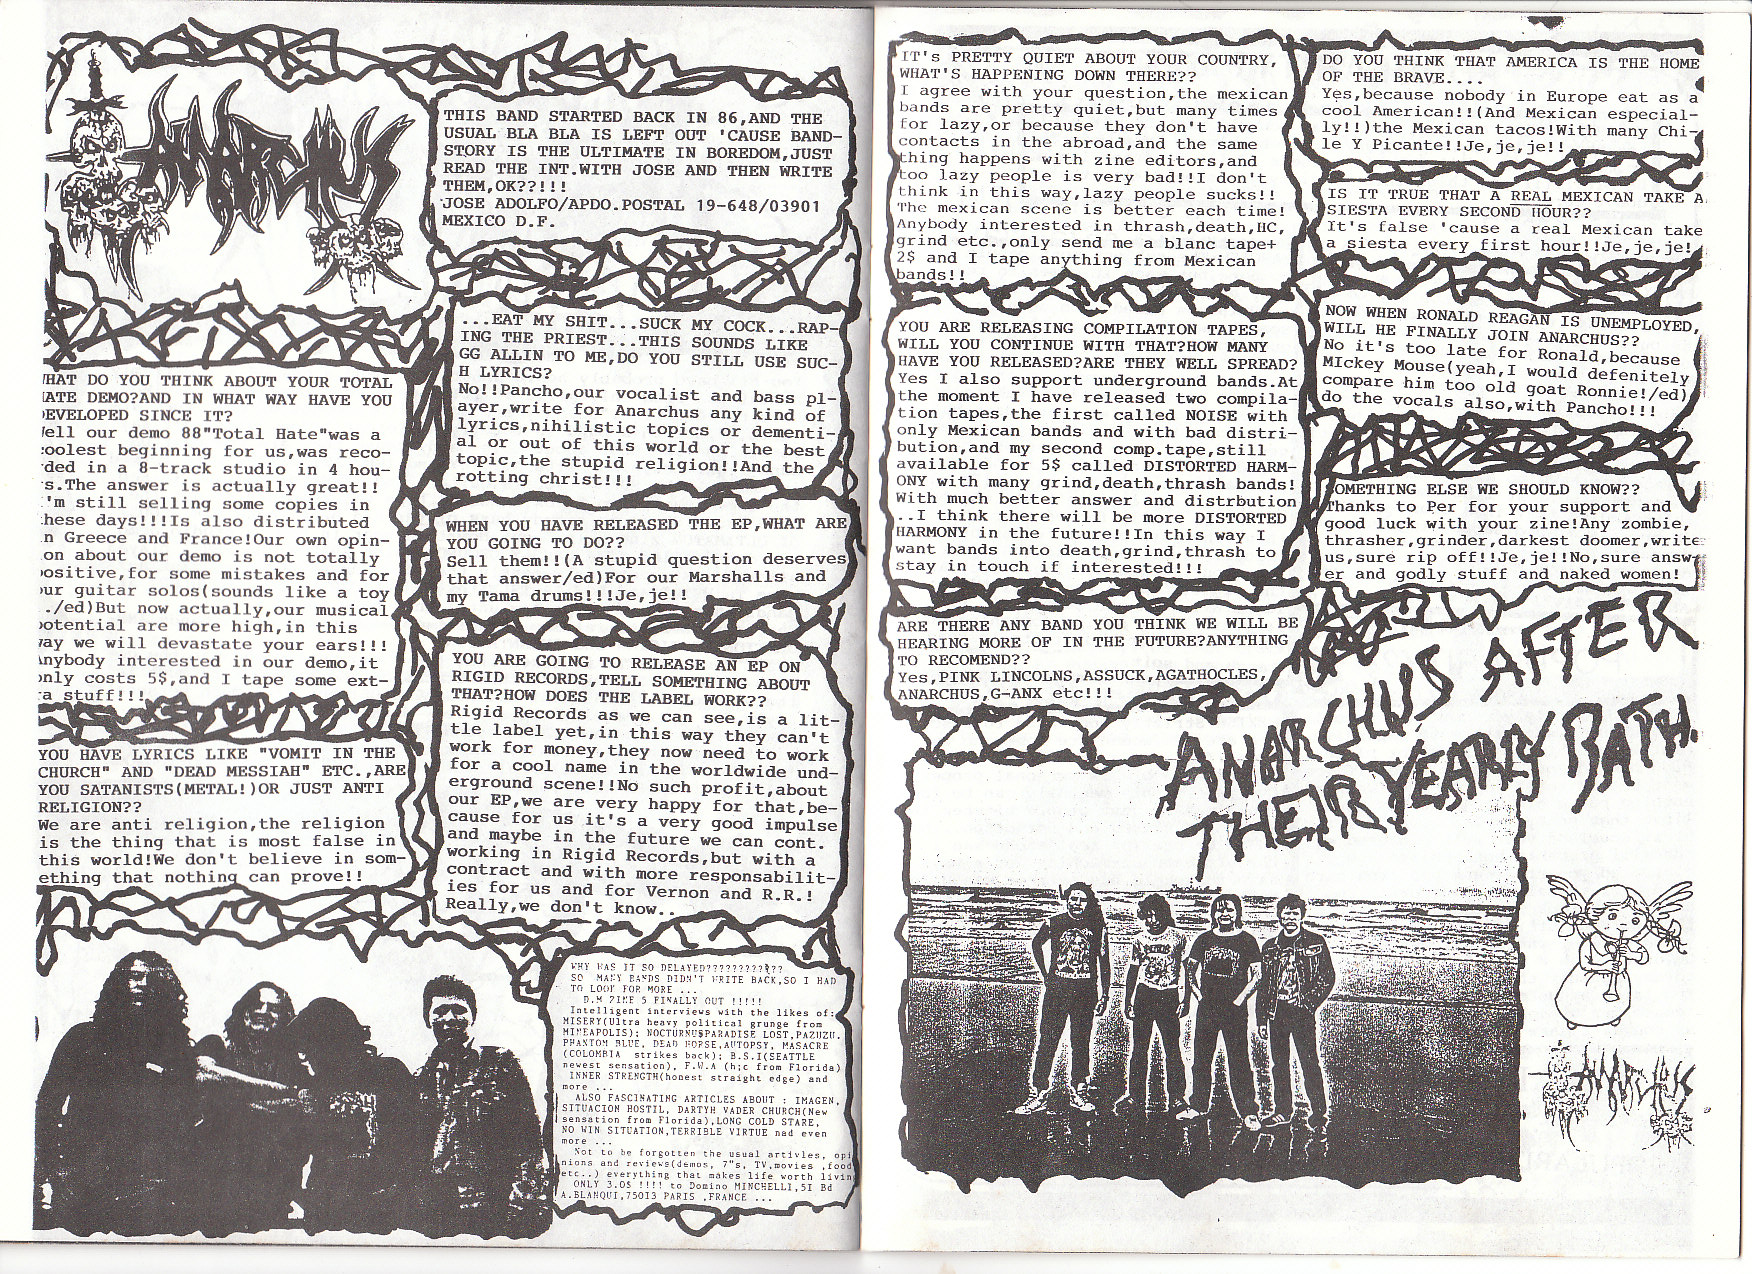 ANARCHUS
THIS BAND STARTED BACK IN 86,AND THE
USUAL BLA BLA IS LEFT OUT 'CAUSE BAND-
STORY IS THE ULTIMATE IN BOREDOM,JUST
READ THE INT.WITH JOSE AND THEN WRITE
THEM,OK??!!!
JOSE ADOLFO/APDO.POSTAL 19-648/03901
MEXICO D.F.
HAT DO YOU THINK ABOUT YOUR TOTAL
ATE DEMO?AND IN WHAT WAY HAVE YOU
EVELOPED SINCE IT?
ell our demo 88"Total Hate"was a
oolest beginning for us,was reco-
ded in a 8-track studio in 4 hou-
s.The answer is actually great!!
'm still selling some copies in
hese days!!!Is also distributed
n Greece and France!Our own opin-
on about our demo is not totally
ositive,for some mistakes and for
ur guitar solos(sounds like a toy
./ed)But now actually,our musical
otential are more high,in this
ay we will devastate your ears!!!
nybody interested in our demo,it
nly costs 5$,and I tape some ext-
a stuff!!!
YOU HAVE LYRICS LIKE "VOMIT IN THE
CHURCH" AND "DEAD MESSIAH" ETC.,ARE
YOU SATANISTS(METAL!)OR JUST ANTI
RELIGION??
We are anti religion,the religion
is the thing that is most false in
this world!We don't believe in som-
ething that nothing can prove!!
...EAT MY SHIT...SUCK MY COCK...RAP-
ING THE PRIEST...THIS SOUNDS LIKE
GG ALLIN TO ME,DO YOU STILL USE SUC-
H LYRICS?
No!!Pancho,our vocalist and bass pl-
ayer,write for Anarchus any kind of
lyrics,nihilistic topics or dementi-
al or out of this world or the best
topic,the stupid religion!!And the
rotting christ!!!
WHEN YOU HAVE RELEASED THE EP,WHAT ARE
YOU GOING TO DO??
Sell them!!(A stupid question deserves
that answer/ed)For our Marshalls and
my Tama drums!!!Je,je!!
YOU ARE GOING TO RELEASE AN EP ON
RIGID RECORDS,TELL SOMETHING ABOUT
THAT?HOW DOES THE LABEL WORK??
Rigid Records as we can see,is a lit-
tle label yet,in this way they can't
work for money,they now need to work
for a cool name in the worldwide und-
erground scene!!No such profit,about
our EP,we are very happy for that,be-
cause for us it's a very good impulse
and maybe in the future we can cont.
working in Rigid Records,but with a
contract and with more responsabilit-
ies for us and for Vernon and R.R.!
Really,we don't know..
WHY WAS IT SO DELAYED????????????
SO MANY BANDS DIDN'T WRITE BACK,SO I HAD
TO LOOK FOR MORE ...
D.M ZINE 5 FINALLY OUT !!!!!
Intelligent interviews with the likes of:
MISERY(Ultra heavy political grunge from
MINEAPOLIS); NOCTURNUS PARADISE LOST,PAZUZU.
PHANTOM BLUE, DEAD HORSE,AUTOPSY, MASACRE
(COLOMBIA strikes back); B.S.I(SEATTLE
newest sensation), F.W.A (h;c from Florida)
INNER STRENGTH(honest straight edge) and
more ...
ALSO FASCINATING ARTICLES ABOUT : IMAGEN,
SITUACION HOSTIL, DARTYH VADER CHURCH(New
sensation from Florida),LONG COLD STARE,
NO WIN SITUATION,TERRIBLE VIRTUE nad even
more ...
Not to be forgotten the usual artivles, opi
nions and reviews(demos, 7"s, TV,movies ,food
etc..) everything that makes life worth livin
ONLY 3.0$ !!!! to Domino MINCHELLI,5I Bd
A.BLANQUI,75013 PARIS .FRANCE ...
IT's PRETTY QUIET ABOUT YOUR COUNTRY,
WHAT'S HAPPENING DOWN THERE??
I agree with your question,the mexican
bands are pretty quiet,but many times
for lazy,or because they don't have
contacts in the abroad,and the same
thing happens with zine editors,and
too lazy people is very bad!!I don't
think in this way,lazy people sucks!!
The mexican scene is better each time!
Anybody interested in thrash,death,HC,
grind etc.,only send me a blanc tape+
2$ and I tape anything from Mexican
bands!!
YOU ARE RELEASING COMPILATION TAPES,
WILL YOU CONTINUE WITH THAT?HOW MANY
HAVE YOU RELEASED?ARE THEY WELL SPREAD?
Yes I also support underground bands.At
the moment I have released two compila-
tion tapes,the first called NOISE with
only Mexican bands and with bad distri-
bution,and my second comp.tape,still
available for 5$ called DISTORTED HARM-
ONY with many grind,death,thrash bands!
With much better answer and distrbution
..I think there will be more DISTORTED
HARMONY in the future!!In this way I
want bands into death,grind,thrash to
stay in touch if interested!!!
ARE THERE ANY BAND YOU THINK WE WILL BE
HEARING MORE OF IN THE FUTURE?ANYTHING
TO RECOMEND??
Yes,PINK LINCOLNS,ASSUCK,AGATHOCLES,
ANARCHUS,G-ANX etc!!!
DO YOU THINK THAT AMERICA IS THE HOME
OF THE BRAVE....
Yes,because nobody in Europe eat as a
cool American!!(And Mexican especial-
ly!!)the Mexican tacos!With many Chi-
le Y Picante!!Je,je,je!!
IS IT TRUE THAT A REAL MEXICAN TAKE A
SIESTA EVERY SECOND HOUR??
It's false 'cause a real Mexican take
a siesta every first hour!!Je,je,je!
NOW WHEN RONALD REAGAN IS UNEMPLOYED,
WILL HE FINALLY JOIN ANARCHUS??
No it's too late for Ronald,because
MIckey Mouse(yeah,I would defenitely
compare him too old goat Ronnie!/ed)
do the vocals also,with Pancho!!!
OMETHING ELSE WE SHOULD KNOW??
Thanks to Per for your support and
good luck with your zine!Any zombie,
thrasher,grinder,darkest doomer,write
us,sure rip off!!Je,je!!No,sure answ-
er and godly stuff and naked women!
ANARCHUS AFTER
THEIR YEARLY BATH.
ANARCHUS